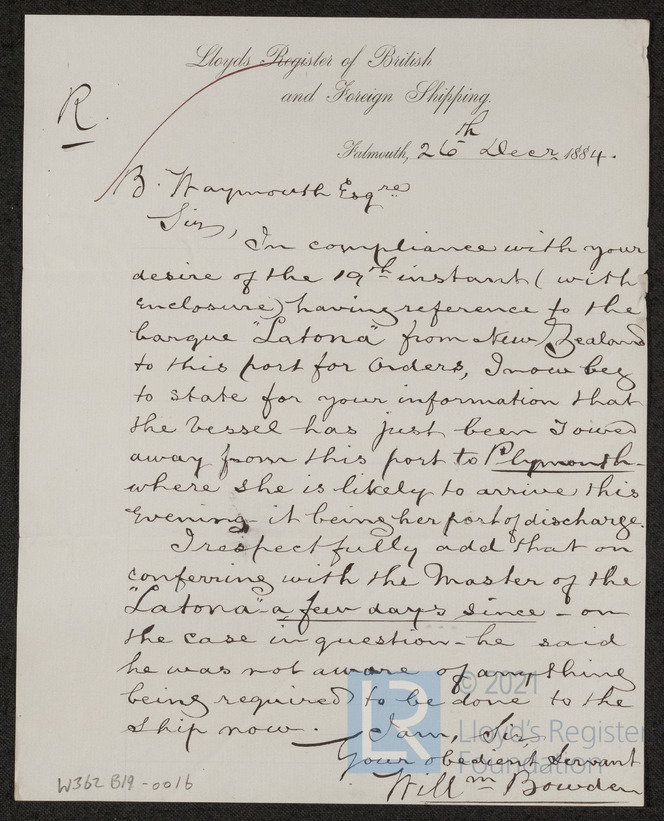 Lloyds Register of British
and Foreign Shipping.
R.
Falmouth, 26th Decr. 1884.
B. Waymouth Esqre
Sir,
In compliance with your
desire of the 19th instant (with
enclosure) having reference to the
barque "Latona" from New Zealand
to this port for Orders, I now beg
to state for your information that
the vessel has just been Towed
away from this port to Plymouth-
where she is likely to arrive this
Evening it being her port of discharge.
I respectfully add that on
conferring with the Master of the
"Latona" a few days since - on
the case in question - he said
he was not aware of any thing
being required to be done to the
ship now.
I am, Sir,
Your obedient Servant
Willm Bowden
W362 B19-0016
LR
© 2021
Lloyd's Register
Foundation